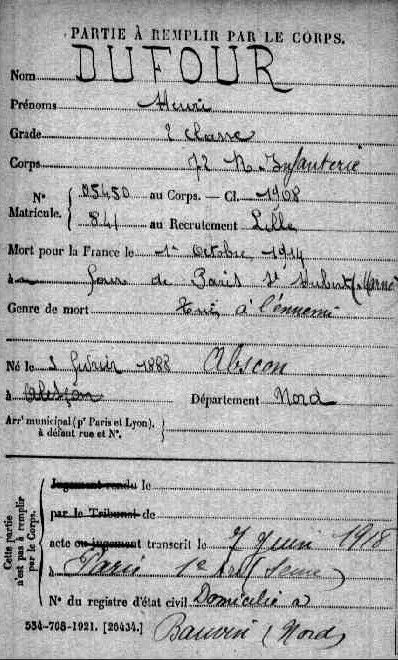 PARTIE À REMPLIR PAR LE CORPS.
Nom DUFOUR
Prénoms Henri
Grade 2 classe
Corps 72 R. Infanterie
N° Matricule. 05450 au Corps. — Cl. 1908
841 au Recrutement Lille
Mort pour la France le 1er Octobre 1914
à four de Paris St Hubert (Marne)
Genre de mort Tué à l'ennemi
Né le février 1888 Abscon
à Département Nord
Arrt municipal (pr Paris et Lyon),
à défaut rue et N°.
Cette partie n'est pas à remplir par le Corps.
Jugement rendu le
par le Tribunal de
acte ou jugement transcrit le 7 Juin 1918
à Paris 1er Arr (Seine)
N° du registre d'état civil Domicilié à
534-708-1921. [26434.] Bauvin (Nord)